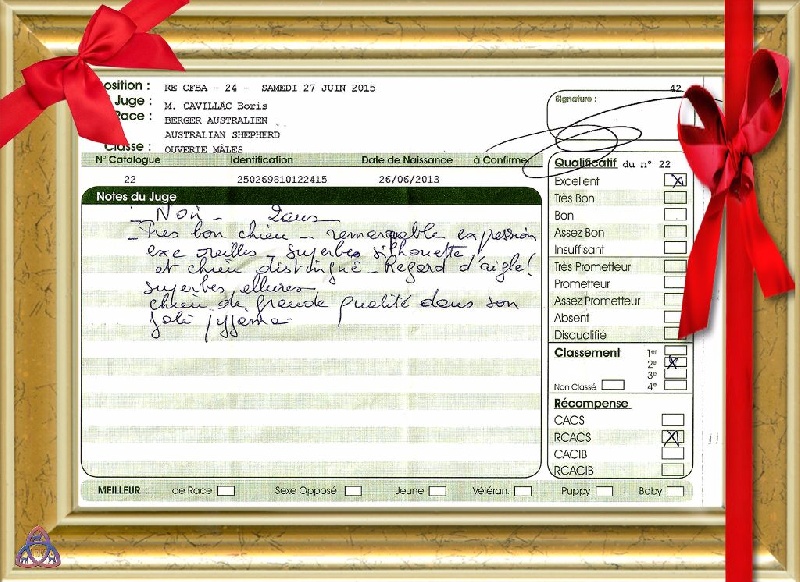 osition : RE CFBA - 24 - SAMEDI 27 JUIN 2015
Juge : M. CAVILLAC Boris
Race : BERGER AUSTRALIEN
AUSTRALIAN SHEPHERD
Classe : OUVERTE MALES
42
Signature :
N° Catalogue Identification Date de Naissance à Confirmer
22 250269810122415 26/06/2013
Notes du Juge
Noir 2 ans
Très bon chien - remarquable expression
exc oreilles - superbes silhouette
et chien distingué - Regard d'aigle !
superbes allures
chien de grande qualité dans son
joli pyjama
Qualificatif du n° 22
Excellent X
Très Bon
Bon
Assez Bon
Insuffisant
Très Prometteur
Prometteur
Assez Prometteur
Absent
Disqualifié
Classement 1er
2e X
3e
Non Classé 4e
Récompense
CACS
RCACS X
CACIB
RCACIB
MEILLEUR de Race Sexe Opposé Jeune Vétéran Puppy Baby